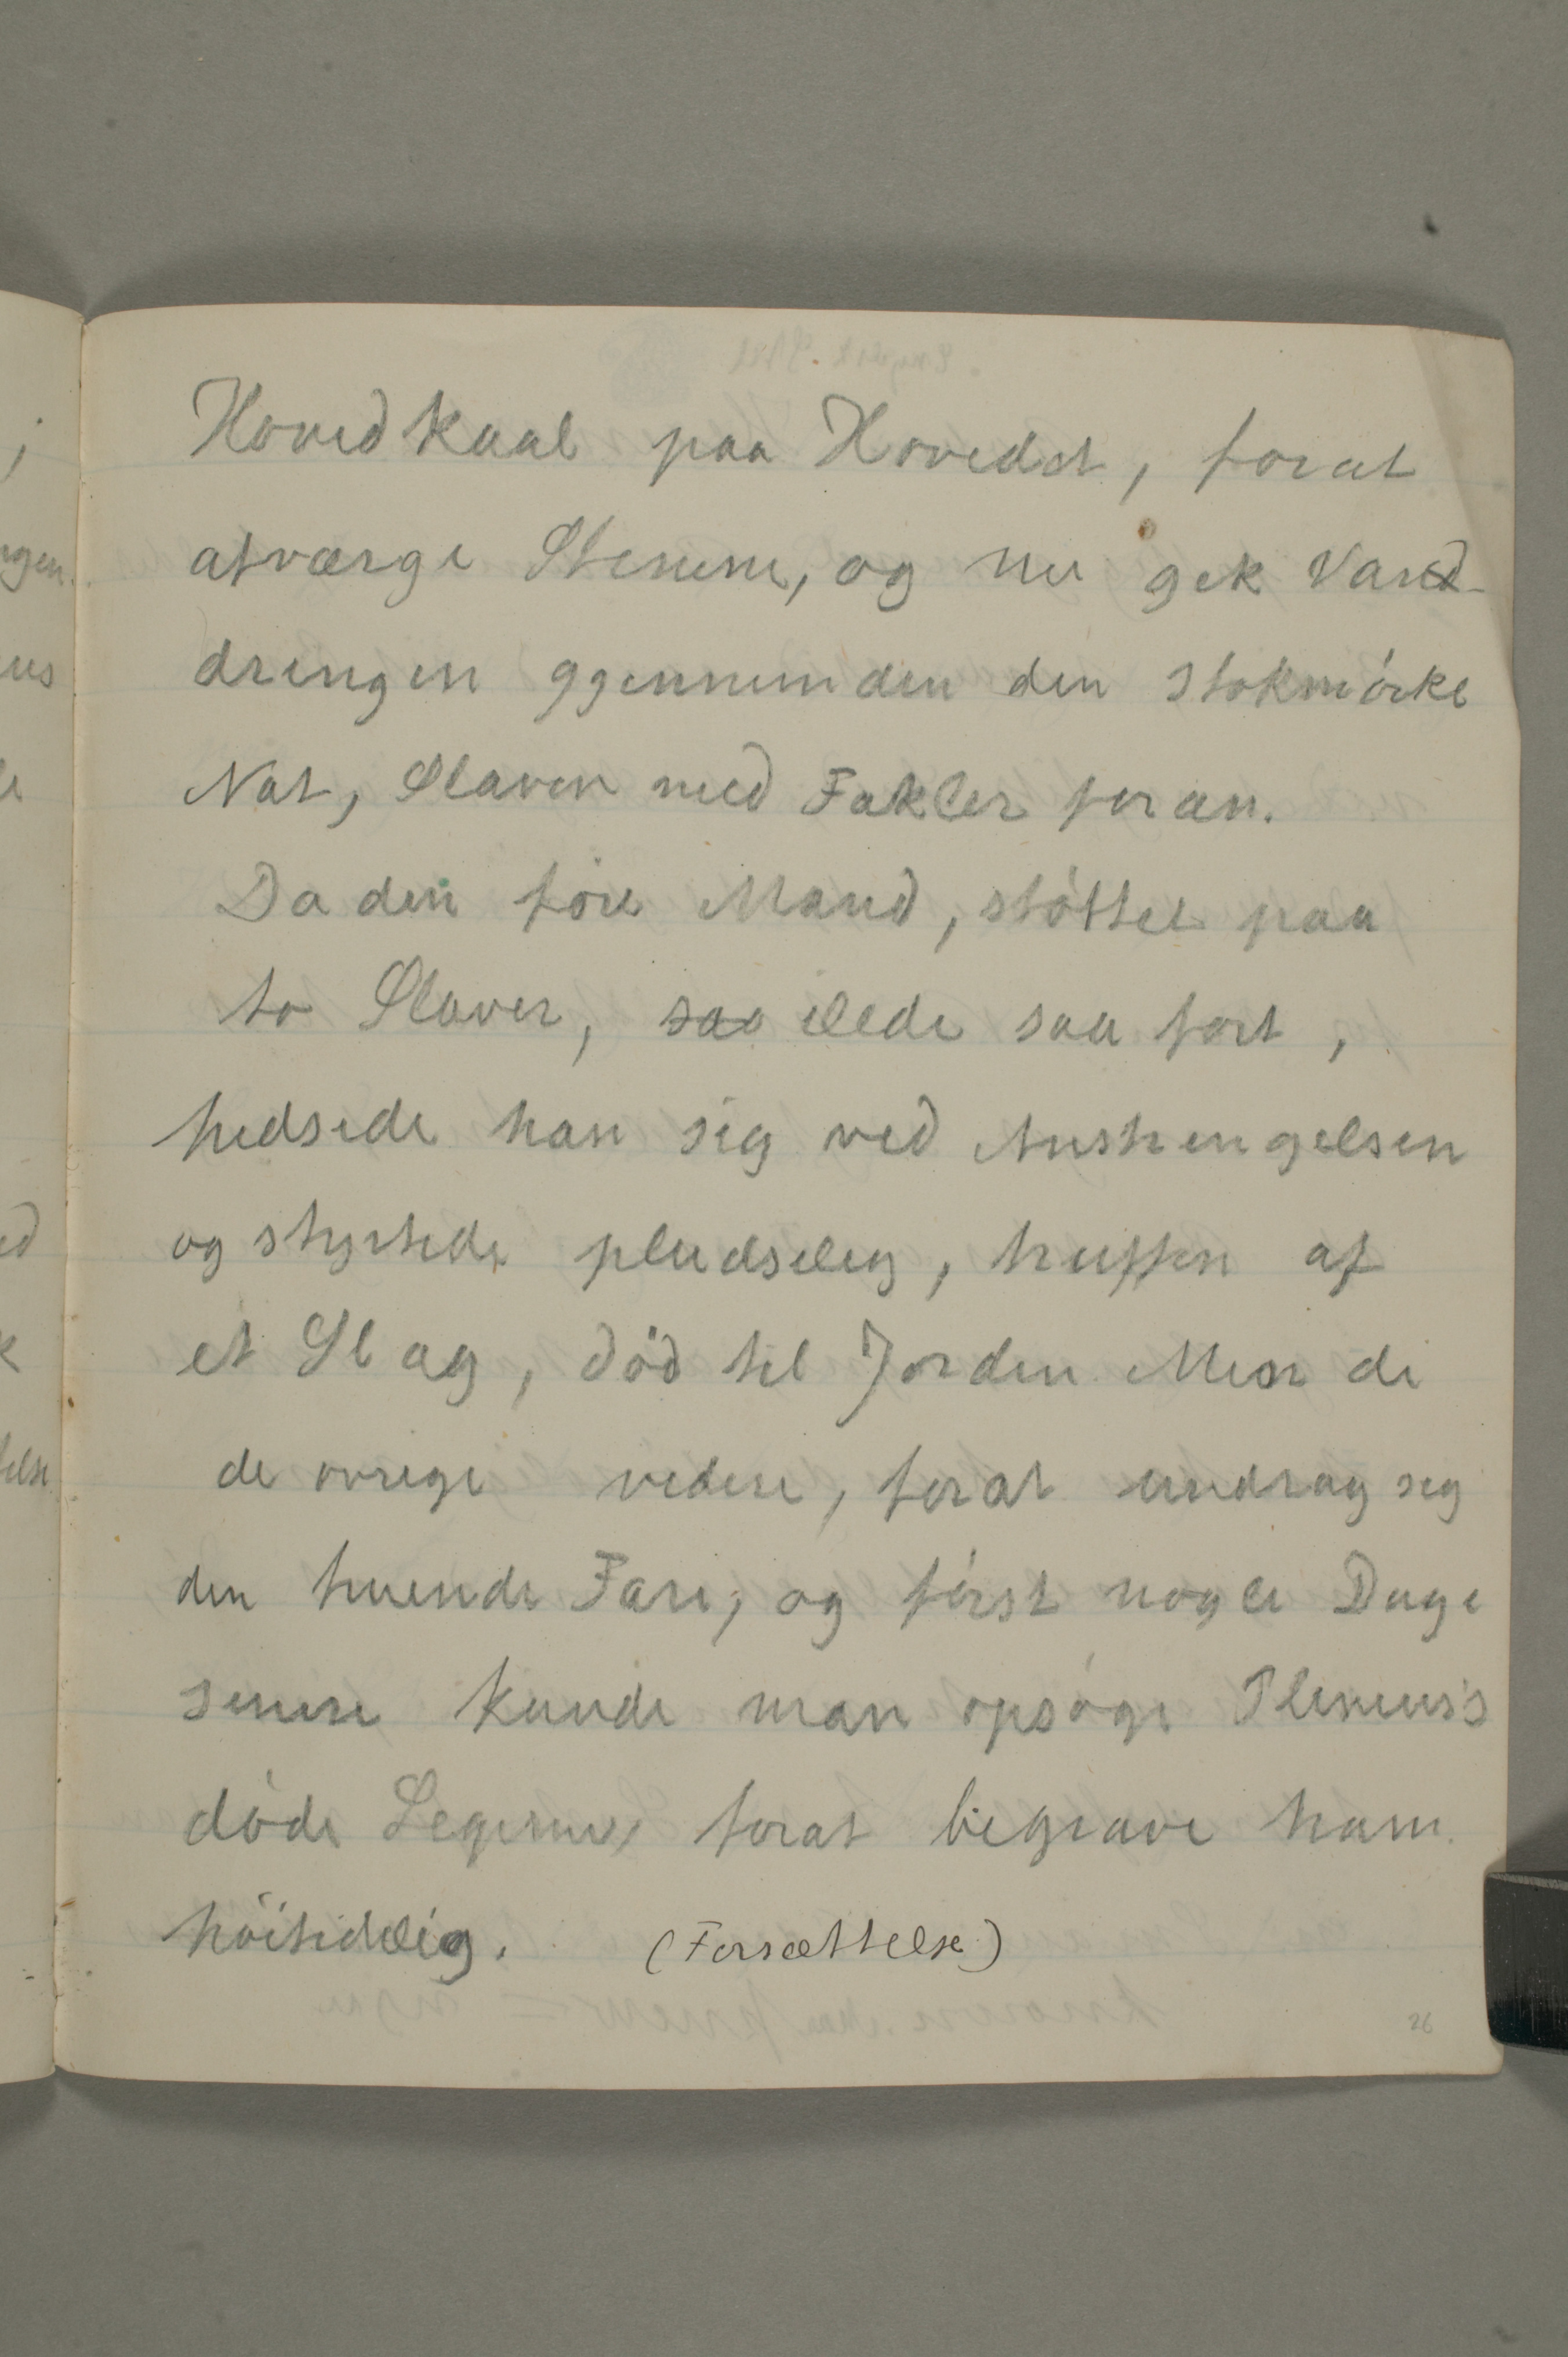 Hovedkaal paa Hovedet, forat
afværge Stenene, og nu gik Van-
dringen ggennemden den stokmórke
Nat, Slaven med Fakler foran.
Da den före Mand, stóttet paa
to Slaver, saa ilede saa fort,
hedsede han sig ved Anstrengelsen
og styrtede pludselig, truffen af
et Slag, död til Jorden. Men de
de ovrige videre, forat undrag sig
den truende Fare; og fórst nogle Dage
senere kunde man opsóge Plinius's
dóde Legeme, forat begrave ham
höitidelig. (Forsættelse)
26